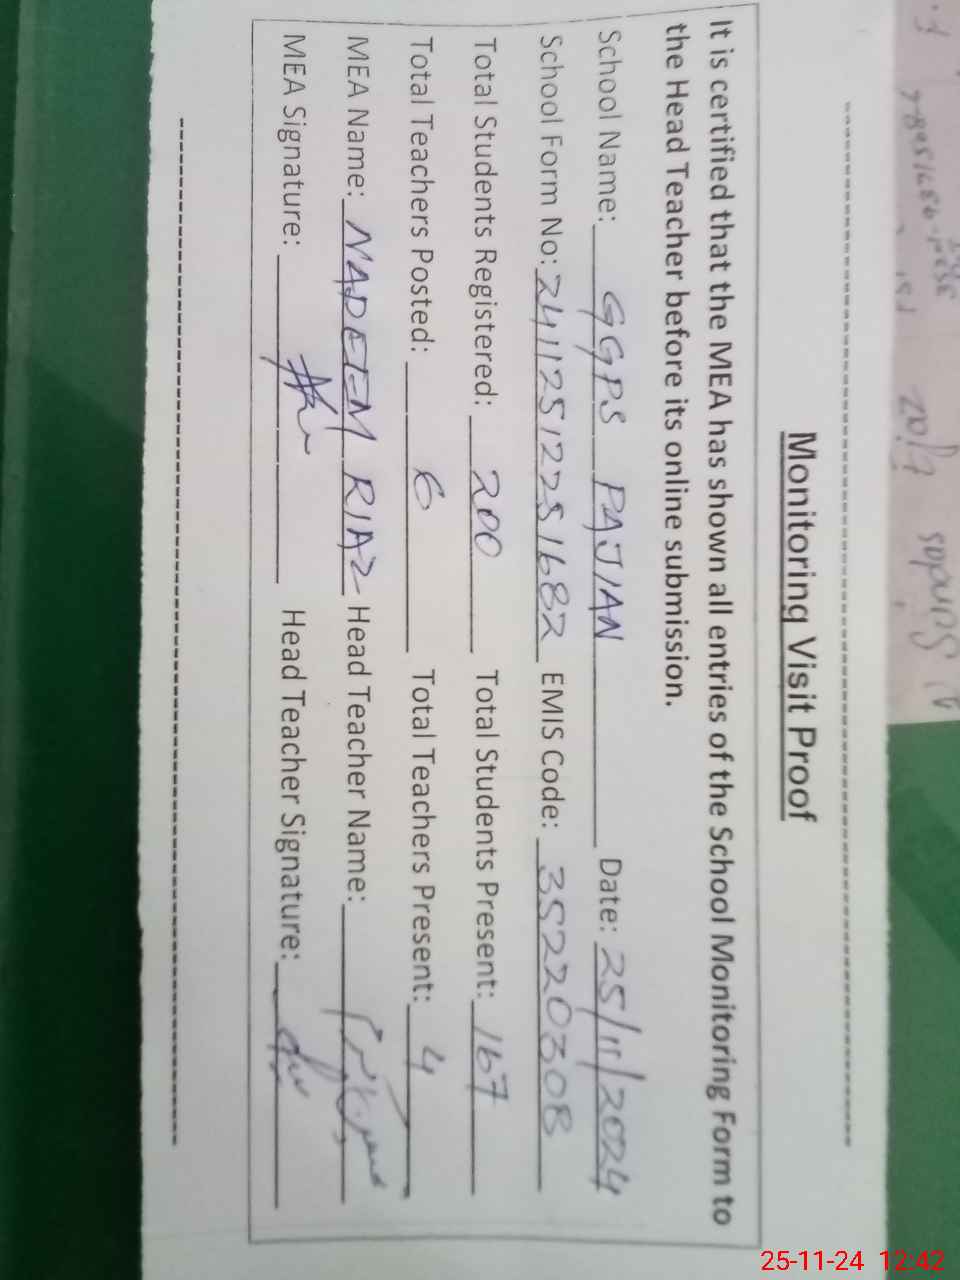 Monitoring Visit Proof
It is certified that the MEA has shown all entries of the School Monitoring Form to
the Head Teacher before its online submission.
School Name: GGPS PAJIAN Date: 25/11/2024
School Form No: 24112512251682 EMIS Code: 35220308
Total Students Registered: 200 Total Students Present: 167
Total Teachers Posted: 6 Total Teachers Present: 4
MEA Name: NADEEM RIAZ Head Teacher Name:
MEA Signature: Head Teacher Signature:
25-11-24 12:42